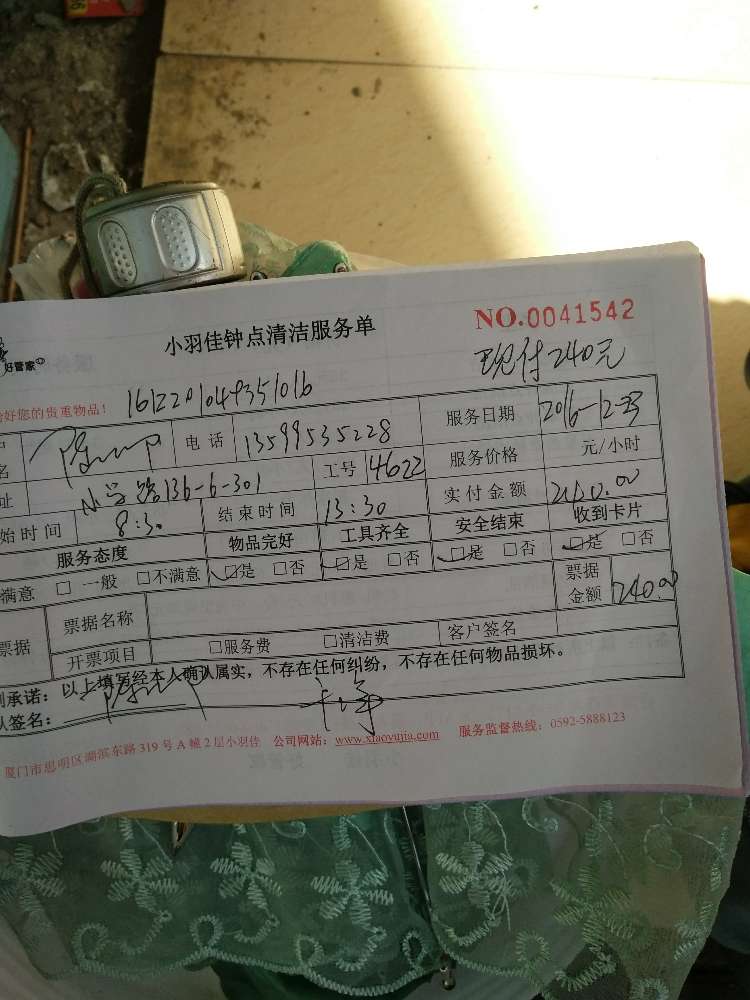 NO.0041542
小羽佳钟点清洁服务单
现付240元
好管家
好您的贵重物品！ 1612201049351016
名 电话 13599535228 服务日期 2016-12-23
址 小学路136-6-301 工号 4622 服务价格 元/小时
始时间 8:30 结束时间 13:30 实付金额 240.00
服务态度 物品完好 工具齐全 安全结束 收到卡片
满意 □ 一般 □不满意 ☑是 □否 ☑是 □否 ☑是 □否 ☑是 □否
票据 票据名称 票据金额 240.00
开票项目 □服务费 □清沾费 客户签名
承诺：以上填写经本人确认属实，不存在任何纠纷，不存在任何物品损坏。
认签名：
厦门市思明区湖滨东路 319 号 A 幢 2 层小羽佳 公司网站：www.xiaoyujia.com 服务监督热线：0592-5888123